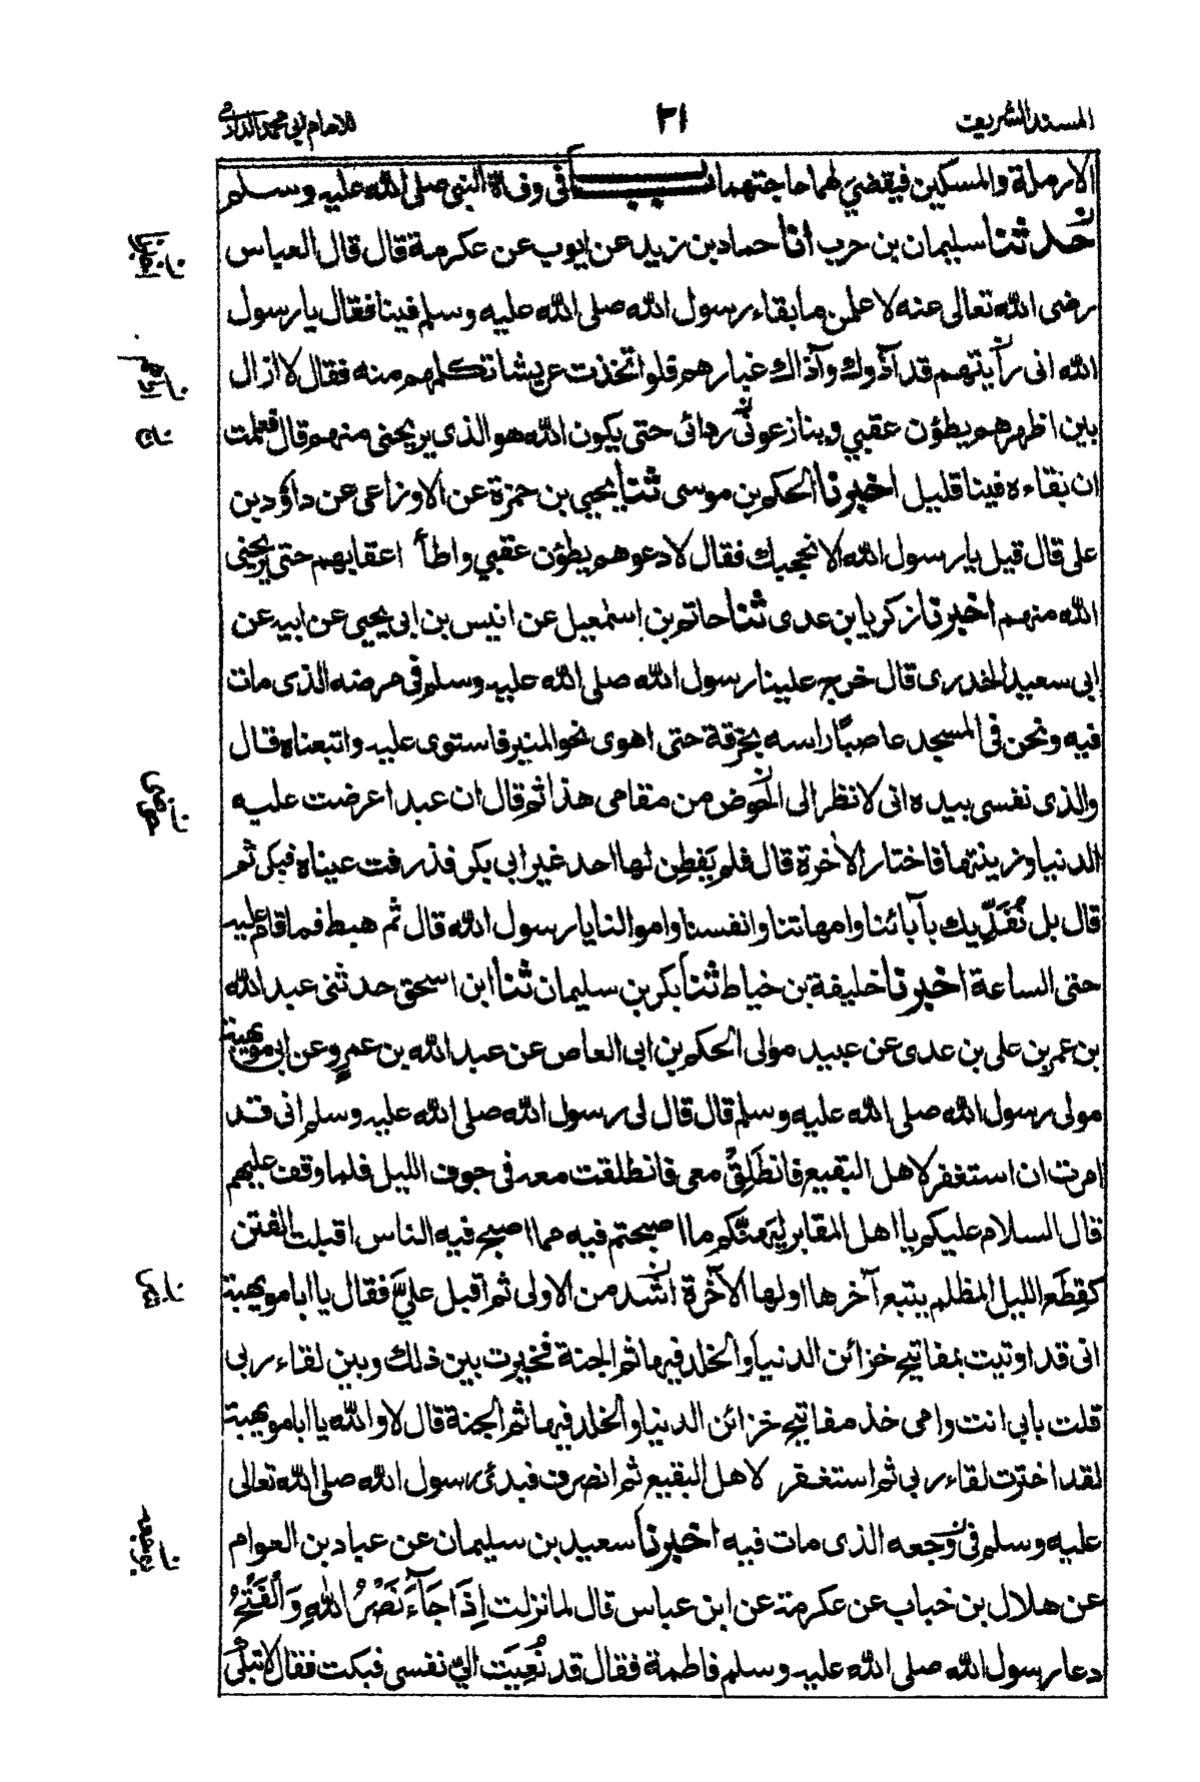 المسند الشريف ٣١ للامام ابي محمد الدارمي
الارملة والمسكين فيقضي لهما حاجتهما باب في وفاة النبي صلى الله عليه وسلم
حدثنا سليمان بن حرب انا حماد بن زيد عن ايوب عن عكرمة قال قال العباس
رضى الله تعالى عنه لاعلمن ما بقاء رسول الله صلى الله عليه وسلم فينا فقال يا رسول
الله انى رأيتهم قد آذوك وآذاك غبارهم فلو اتخذت عريشا تكلمهم منه فقال لا ازال
بين اظهرهم يطؤن عقبي وينازعونى ردائى حتى يكون الله هو الذى يريحنى منهم قال فعلمت
ان بقاءه فينا قليل اخبرنا الحكم بن موسى ثنا يحيى بن حمزة عن الاوزاعى عن داؤد بن
على قال قيل يا رسول الله الا نحجبك فقال لا دعوهم يطؤن عقبي واطأ اعقابهم حتى يريحنى
الله منهم اخبرنا زكريا بن عدى ثنا حاتم بن اسمعيل عن انيس بن ابى يحيى عن ابيه عن
ابى سعيد الخدرى قال خرج علينا رسول الله صلى الله عليه وسلم فى مرضه الذى مات
فيه ونحن فى المسجد عاصبًا راسه بخرقة حتى اهوى نحو المنبر فاستوى عليه واتبعناه قال
والذى نفسى بيده انى لانظر الى الحوض من مقامى هذا ثم قال ان عبدا عرضت عليه
الدنيا وزينتها فاختار الاخرة قال فلم يَفطِن لها احد غير ابى بكر فذرفت عيناه فبكى ثم
قال بل نُفَدِّيك بآبائنا وامهاتنا وانفسنا واموالنا يا رسول الله قال ثم هبط فما قام عليه
حتى الساعة اخبرنا خليفة بن خياط ثنا بكر بن سليمان ثنا ابن اسحق حدثنى عبد الله
بن عمر بن على بن عدى عن عبيد مولى الحكم بن ابى العاص عن عبد الله بن عمرو عن ابى مويهبة
مولى رسول الله صلى الله عليه وسلم قال قال لى رسول الله صلى الله عليه وسلم انى قد
امرت ان استغفر لاهل البقيع فانطَلِقْ معى فانطلقت معه فى جوف الليل فلما وقف عليهم
قال السلام عليكم يا اهل المقابر ليَهنئكم ما اصبحتم فيه مما اصبح فيه الناس اقبلت الفتن
كقِطَع الليل المظلم يتبع آخرها اولها الآخرة اشد من الاولى ثم اقبل علىَّ فقال يا ابا مويهبة
انى قد اوتيت بمفاتيح خزائن الدنيا والخلد فيها ثم الجنة فخيرت بين ذلك وبين لقاء ربى
قلت بابى انت وامى خذ مفاتيح خزائن الدنيا والخلد فيها ثم الجنة قال لا والله يا ابا مويهبة
لقد اخترت لقاء ربى ثم استغفر لاهل البقيع ثم انصرف فبدئ رسول الله صلى الله تعالى
عليه وسلم فى وجعه الذى مات فيه اخبرنا سعيد بن سليمان عن عباد بن العوام
عن هلال بن خباب عن عكرمة عن ابن عباس قال لما نزلت اِذَا جَآءَ نَصْرُ اللهِ وَالْفَتْحُ
دعا رسول الله صلى الله عليه وسلم فاطمة فقال قد نُعِيَت الىّ نفسى فبكت فقال لا تبكى